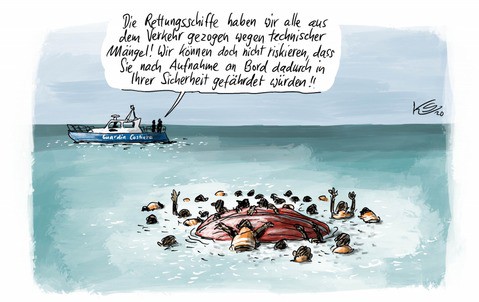 Die Rettungsschiffe haben wir alle aus
dem Verkehr gezogen wegen technischer
Mängel! Wir können doch nicht riskieren, dass
Sie nach Aufnahme an Bord dadurch in
Ihrer Sicherheit gefährdet würden!!
Guardia Costiera